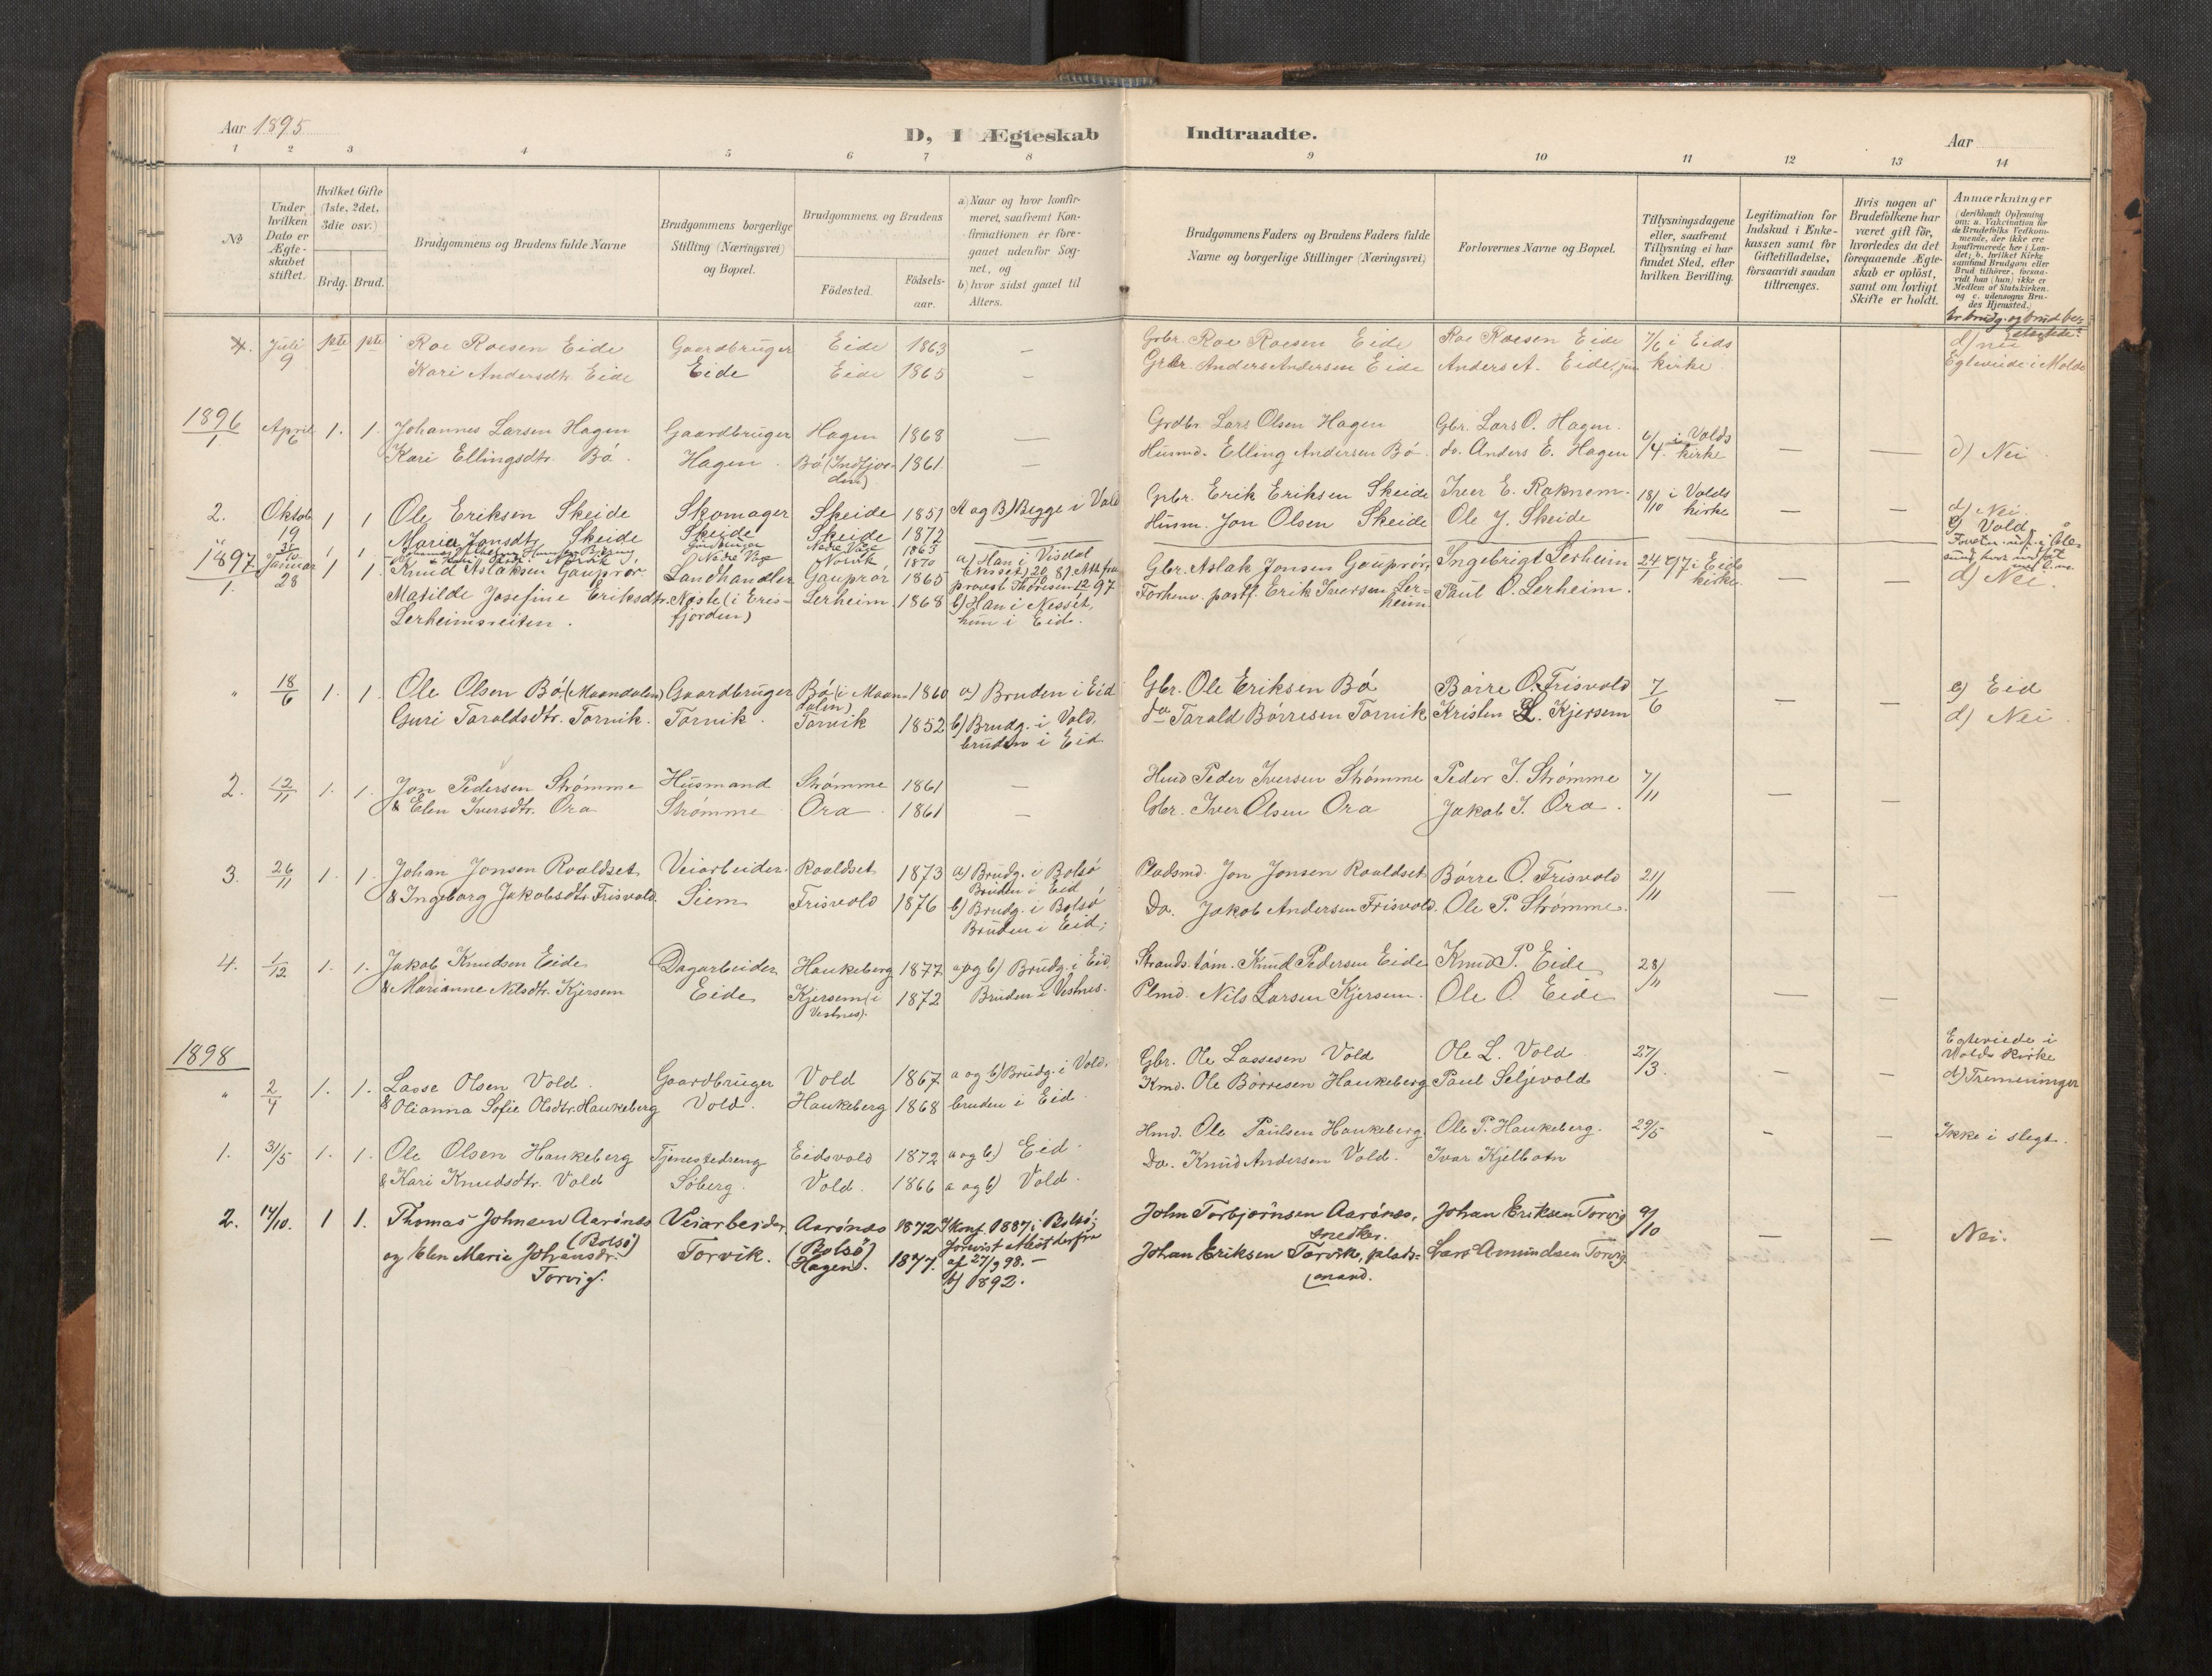 Aar 1895
D, I Ægteskab Indtraadte.
Aar
1 2 3 4 5 6 7 8 9 10 11 12 13 14
No
Under hvilken Dato er Ægte-skabet stiftet.
Hvilket Gifte (1ste, 2det, 3die osv.)
Brdg. Brud.
Brudgommens og Brudens fulde Navne
Brudgommens borgerlige Stilling (Næringsvei) og Bopæl.
Brudgommens og Brudens
Fødested. Fødsels-aar.
a) Naar og hvor konfir-meret, saafremt Kon-firmationen er fore-gaaet udenfor Sog-net, og
b) hvor sidst gaaet til Alters.
Brudgommens Faders og Brudens Faders fulde Navne og borgerlige Stillinger (Næringsvei)
Forlovernes Navne og Bopæl.
Tillysningsdagene eller, saafremt Tillysning ei har fundet Sted, efter hvilken Bevilling.
Legitimation for Indskud i Enke-kassen samt for Giftetilladelse, forsaavidt saadan tiltrænges.
Hvis nogen af Brudefolkene har været gift før, hvorledes da det foregaaende Ægte-skab er opløst, samt om lovligt Skifte er holdt.
Anmærkninger
(deriblandt Oplysning om: a. Vakcination for de Brudefolks Vedkom-mende, der ikke ere konfirmerede her i Lan-det; b. hvilket Kirke-samfund Brudgom eller Brud tilhører, forsaa-vidt han (hun) ikke er Medlem af Statskirken, og c. udensogns Bru-des Hjemsted.)
Juli 9 pte pte Roe Roesen Eide Gaardbruger Eide 1863 — Grbr. Roe Roesen Eide Roe Roesen Eide 7/6 i Eids d) nei
Kari Andersdtr. Eide Eide Eide 1865 — Grbr. Anders Andersen Eide Anders A. Eide, jun kirke Egteviede i Molde
1896
1 April 6 1. 1. Johannes Larsen Hagen Gaardbruger Hagen 1868 — Grdbr. Lars Olsen Hagen Gbr. Lars O. Hagen. 6/4 i Volds — — d) Nei
Kari Ellingsdtr. Bö. Hagen. Bö (Indfjor-den) 1861 — Husmd. Elling Andersen Bö. do. Anders E. Hagen kirke
2. Oktob 19 1 1 Ole Eriksen Skeide Skomager Skeide 1851 A og B) Begge i Vold Grbr. Erik Eriksen Skeide Iver E. Raknem. 18/10 i Volds d) Nei.
Maria Jonsdtr. Skeide Skeide Skeide 1872 Husm. Jon Olsen Skeide Ole J. Skeide kirke e) Vold.
1897
1. Januar 28 1 1 Knud Aslaksen Gauprör Landhandler Gauprör 1865 a) Han i Visdal Gbr. Aslak Jonsen Gauprör, Ingebrigt Lerheim 24/1 i Eids kirke — — d) Nei.
Matilde Josefine Eriksdtr. Nøste (i Eris-fjorden) Lerheim 1868 b) Han i Nesset, hun i Eid. Forhenv. postf. Erik Iversen Ler-heim Paul O. Lerheim.
Lerheimsreiten.
" 18/6 1. 1. Ole Olsen Bö (Maandalen) Gaardbruger Bö (i Maan-dalen) 1860 a) Bruden i Eid Gbr. Ole Eriksen Bö Börre O. Frisvold 7/6 — — e) Eid
Guri Taraldsdtr. Torvik. Torvik. Torvik 1852 b) Brudg. i Vold, bruden i Eid do Tarald Börresen Torvik Kristen L. Kjersem d) Nei
2. 12/11 1. 1. Jon Pedersen Strömme Husmand Strömme 1861 — Husd Peder Iversen Strömme Peder I. Strömme 7/11 — —
& Elen Iversdtr. Ora Strömme Ora 1861 — Gbr. Iver Olsen Ora Jakob I. Ora.
3. 26/11 1. 1. Johan Jonsen Roaldset Veiarbeider Roaldset 1873 a) Brudg. i Bolsö Bruden i Eid Pladsmd. Jon Jonsen Roaldset Börre O. Frisvold 21/11 — —
& Ingeborg Jakobsdtr. Frisvold. Siem Frisvold 1876 b) Brudg. i Bolsö Bruden i Eid; Do. Jakob Andersen Frisvold. Ole P. Strömme.
4. 1/12 1. 1. Jakob Knudsen Eide Dagarbeider Haukeberg 1877 a og b) Brudg. i Eid, Strands. töm. Knud Pedersen Eide Knud P. Eide 28/11 — —
& Marianne Nilsdtr. Kjersem Eide Kjersem (i Vestnes). 1872 Bruden i Vestnes. Plmd. Nils Larsen Kjersem. Ole O. Eide
1898
" 2/4 1. 1. Lasse Olsen Vold. Gaardbruger Vold 1867 a og b) Brudg. i Vold, Gbr. Ole Lassesen Vold Ole L. Vold 27/3 — — Egteviede i Volds kirke
& Olianna Sofie Olsdtr. Haukeberg Vold. Haukeberg 1868 bruden i Eid. Kmd. Ole Börresen Haukeberg Paul Seljevold d) Tremeninger
1. 31/5 1. 1. Ole Olsen Haukeberg Tjenestedreng Eidsvold 1872 a og b) Eid. Hmd. Ole Paulsen Haukeberg. Ole P. Haukeberg. 29/5 — — Ikke i slegt.
& Kari Knudsdtr. Vold Söberg. Vold. 1866 a og b) Vold. Do. Knud Andersen Vold. Ivar Kjelbotn
2. 14/10. 1 1. Thomas Johnsen Aarönes (Bolsö) Veiarbeider Aarönes (Bolsö) 1872 Konf. 1887 i Bolsö; forevist attest derfra af 27/9 98. — John Torbjörnsen Aarönes, snedker. Johan Eriksen Torvig 9/10 — — Nei.
og Elen Marie Johansdr. Torvig. Torvik. Hagen. 1877. b) 1892. Johan Eriksen Torvik, plads-mand. Lars Amundsen Torvig.